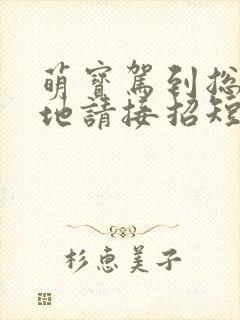 萌寳駕到捴
地請接招短
杉恵美子